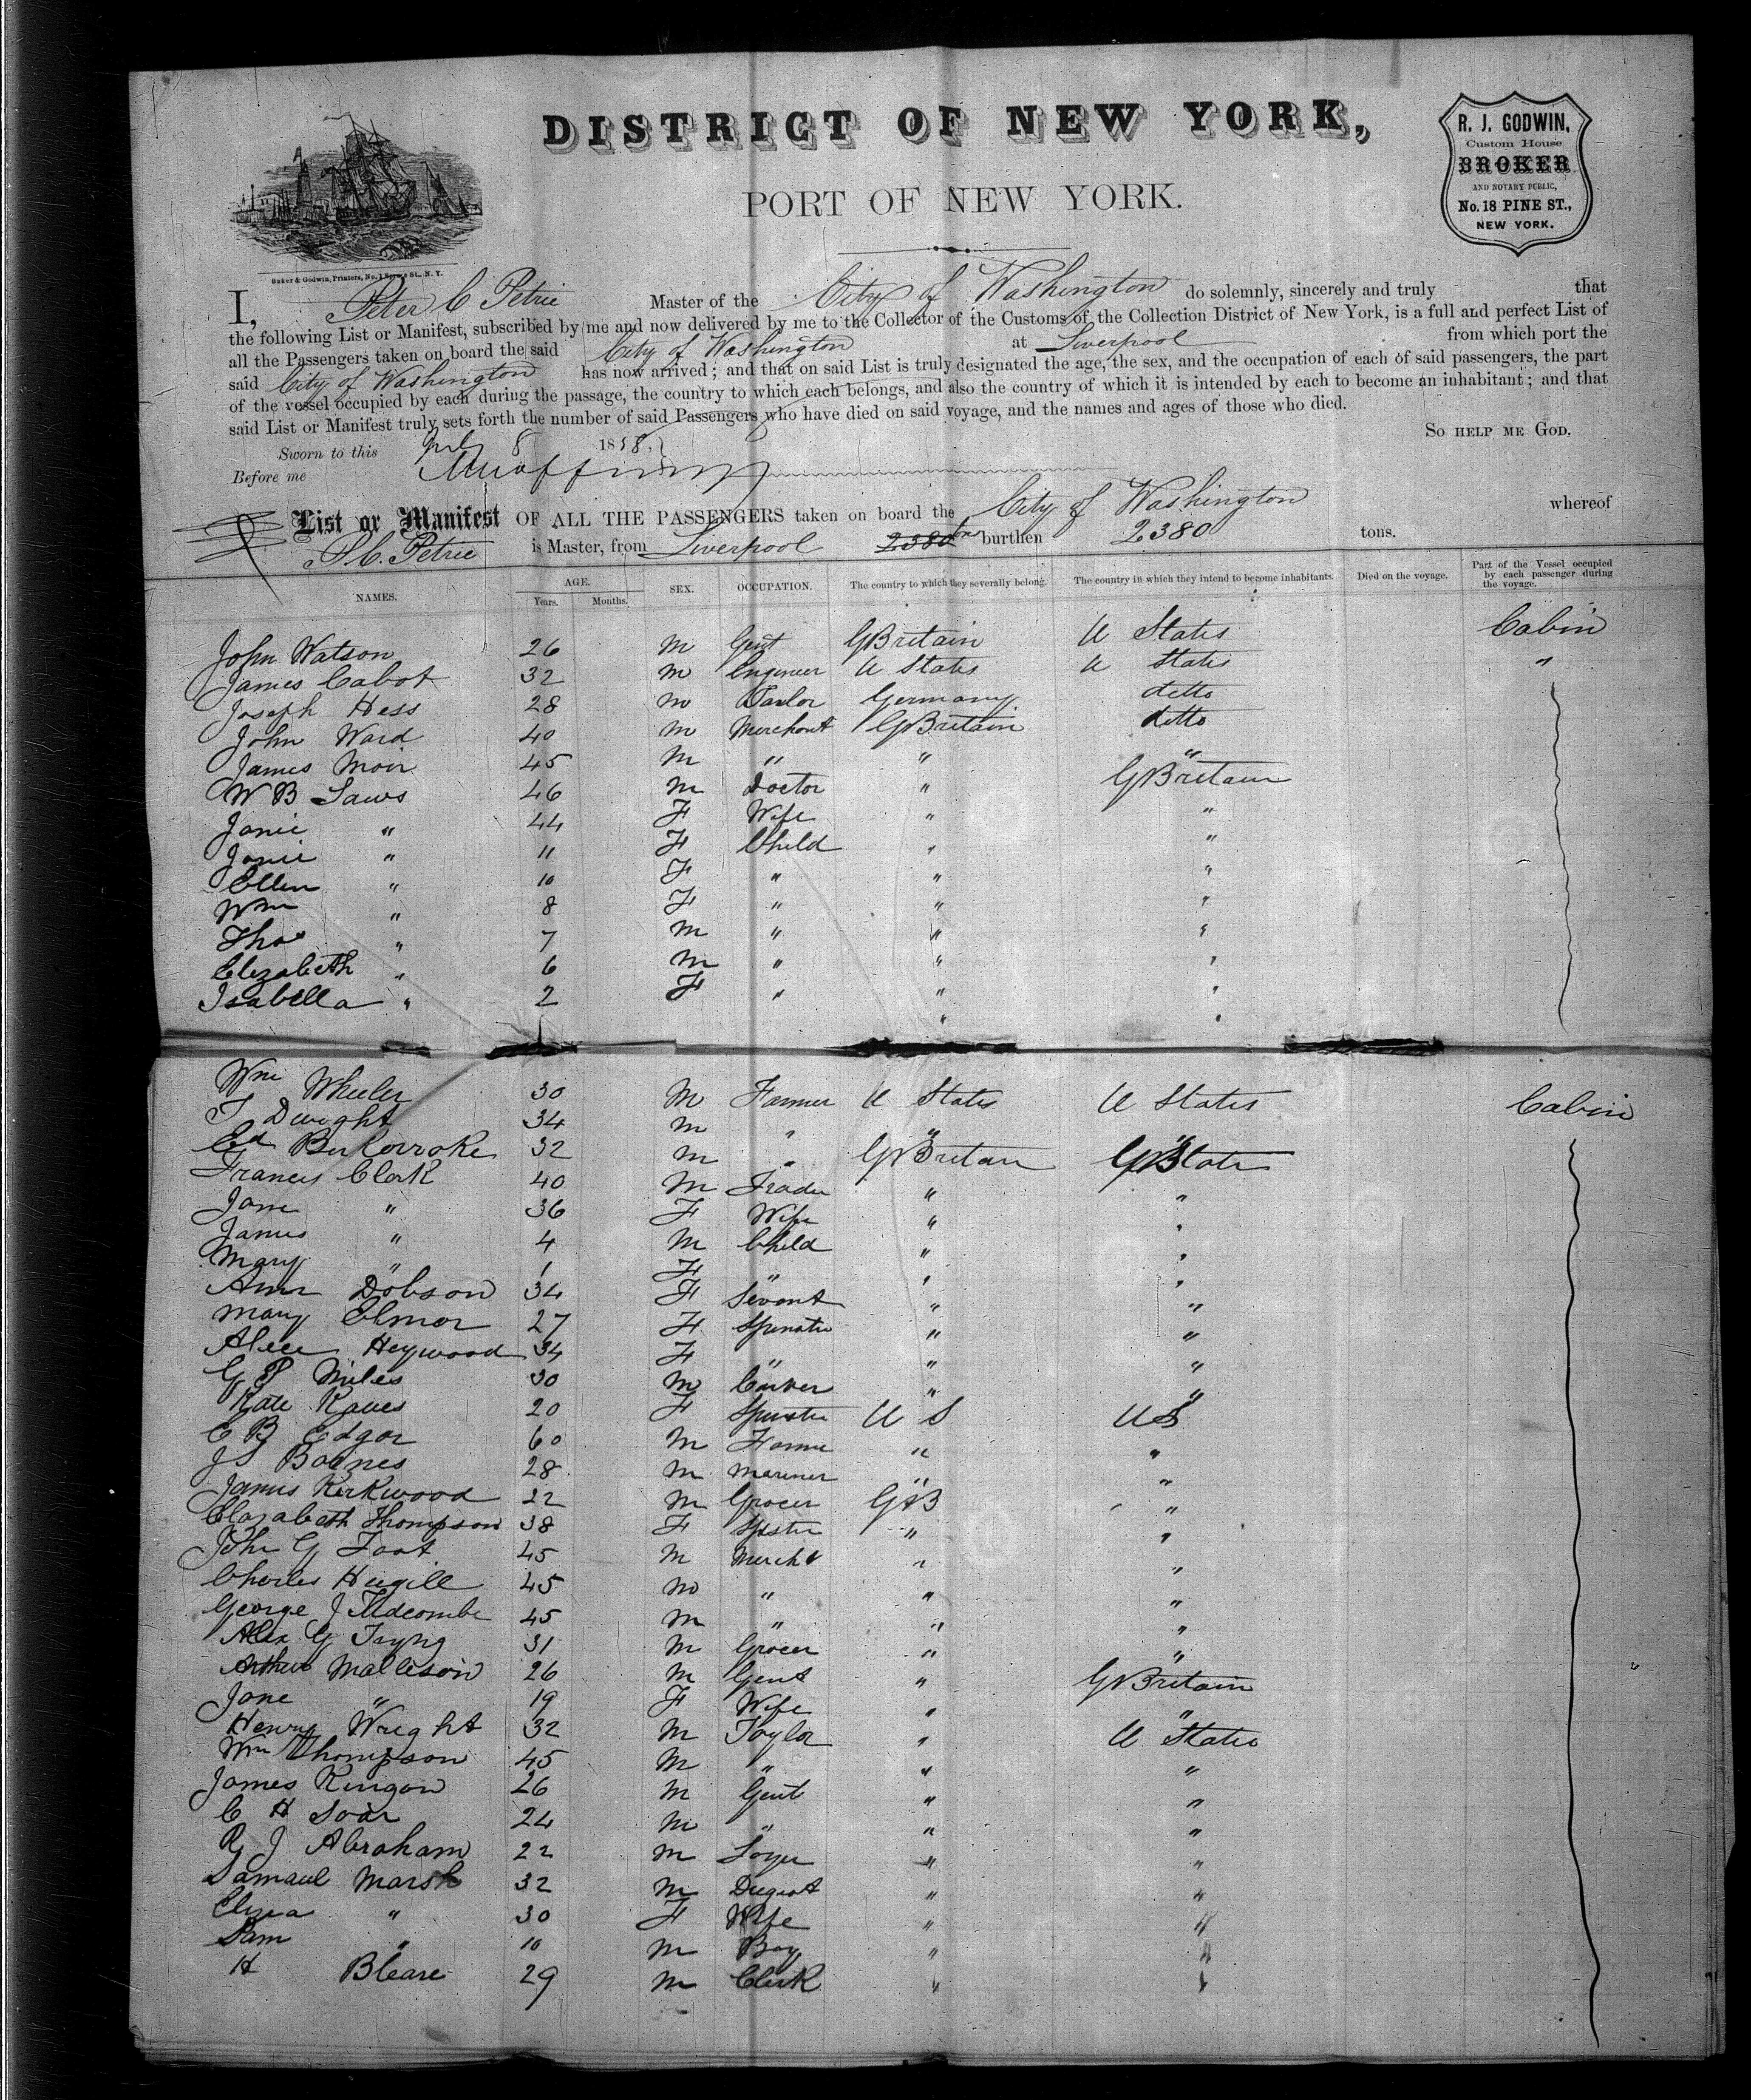 DISTRICT OF NEW YORK,
PORT OF NEW YORK.
R. J. GODWIN,
Custom House
BROKER
AND NOTARY PUBLIC,
No. 18 PINE ST.,
NEW YORK.
Baker & Godwin, Printers, No. 1 Spruce St., N. Y.
I, Peter C Petrie Master of the City of Washington do solemnly, sincerely and truly that
the following List or Manifest, subscribed by me and now delivered by me to the Collector of the Customs of the Collection District of New York, is a full and perfect List of
all the Passengers taken on board the said City of Washington at Liverpool from which port the
said City of Washington has now arrived; and that on said List is truly designated the age, the sex, and the occupation of each of said passengers, the part
of the vessel occupied by each during the passage, the country to which each belongs, and also the country of which it is intended by each to become an inhabitant; and that
said List or Manifest truly sets forth the number of said Passengers who have died on said voyage, and the names and ages of those who died.
SO HELP ME GOD.
Sworn to this July 8 1858.
Before me
List or Manifest OF ALL THE PASSENGERS taken on board the City of Washington whereof
P. C. Petrie is Master, from Liverpool 2380 burthen 2380 tons.
NAMES. AGE. Years. Months. SEX. OCCUPATION. The country to which they severally belong. The country in which they intend to become inhabitants. Died on the voyage. Part of the Vessel occupied by each passenger during the voyage.
John Watson 26 M Gent GBritain U States Cabin
James Cabot 32 m Engineer U States U States "
Joseph Hess 28 m Tailor Germany ditto
John Ward 40 m Merchant GBritain ditto
James Moir 45 M " " "
W B Laws 46 m Doctor " GBritain
Janie " 44 F Wife " "
Janie " 11 F Child " "
Ellen " 10 F " " "
Wm " 8 F " " "
Thos " 7 m " " "
Elizabeth " 6 m " " "
Isabella " 2 F " " "
" "
Wm Wheeler 30 M Farmer U States U States Cabin
T Dwight 34 m " " "
Ed 32 m " GBritain
Francis Clark 40 M Trader " "
Jane " 36 F Wife " "
James " 4 M Child " "
Mary " 1 F " " "
Ann Dobson 34 F Servant " "
Mary Elmor 27 F Spinster " "
Alice Heywood 34 F " " "
G P Miles 30 m Carver " "
Kate 20 F Spinster U S U S
C B Edgar 60 M Farmer " "
J S Baines 28 m mariner " "
James Kirkwood 22 m Grocer G B "
Elizabeth Thompson 38 F Spster " "
John G Foot 45 m Mercht " "
Charles Hugill 45 m " " "
George J 45 m " " "
Alex G 31 M Grocer " "
Arthur Malleson 26 M Gent " GBritain
Jane " 19 F Wife " "
Henry Wright 32 M Taylor " U States
Wm Thompson 45 M " " "
James 26 m Gent " "
C H Soar 24 m " " "
R J Abraham 22 m " "
Samaul Marsh 32 m " "
Eliza " 30 F Wife " "
Sam " 10 m Boy " "
H Bleare 29 m Clerk " "